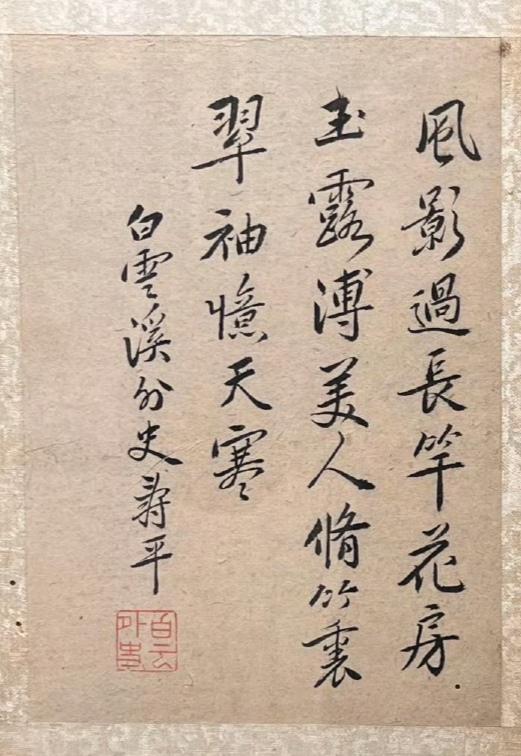 風影過長竿花房
玉露溥美人脩竹裏
翠袖憶天寒
白雲溪外史壽平
白雲外史